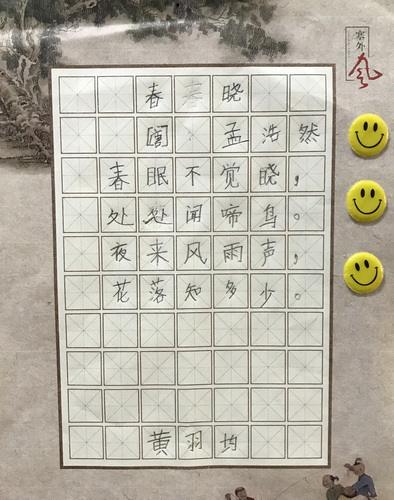 塞外
风
春晓
孟浩然
春眠不觉晓，
处处闻啼鸟。
夜来风雨声，
花落知多少。
黄羽均